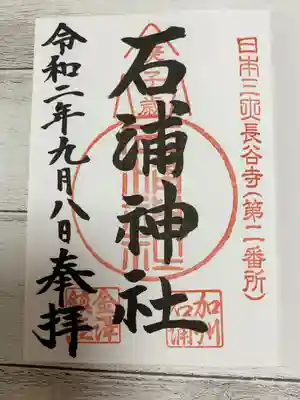 日本三大長谷寺(第二番所)
石浦神社
加州
石浦
令和二年九月八日 奉拝
金澤
鎮座